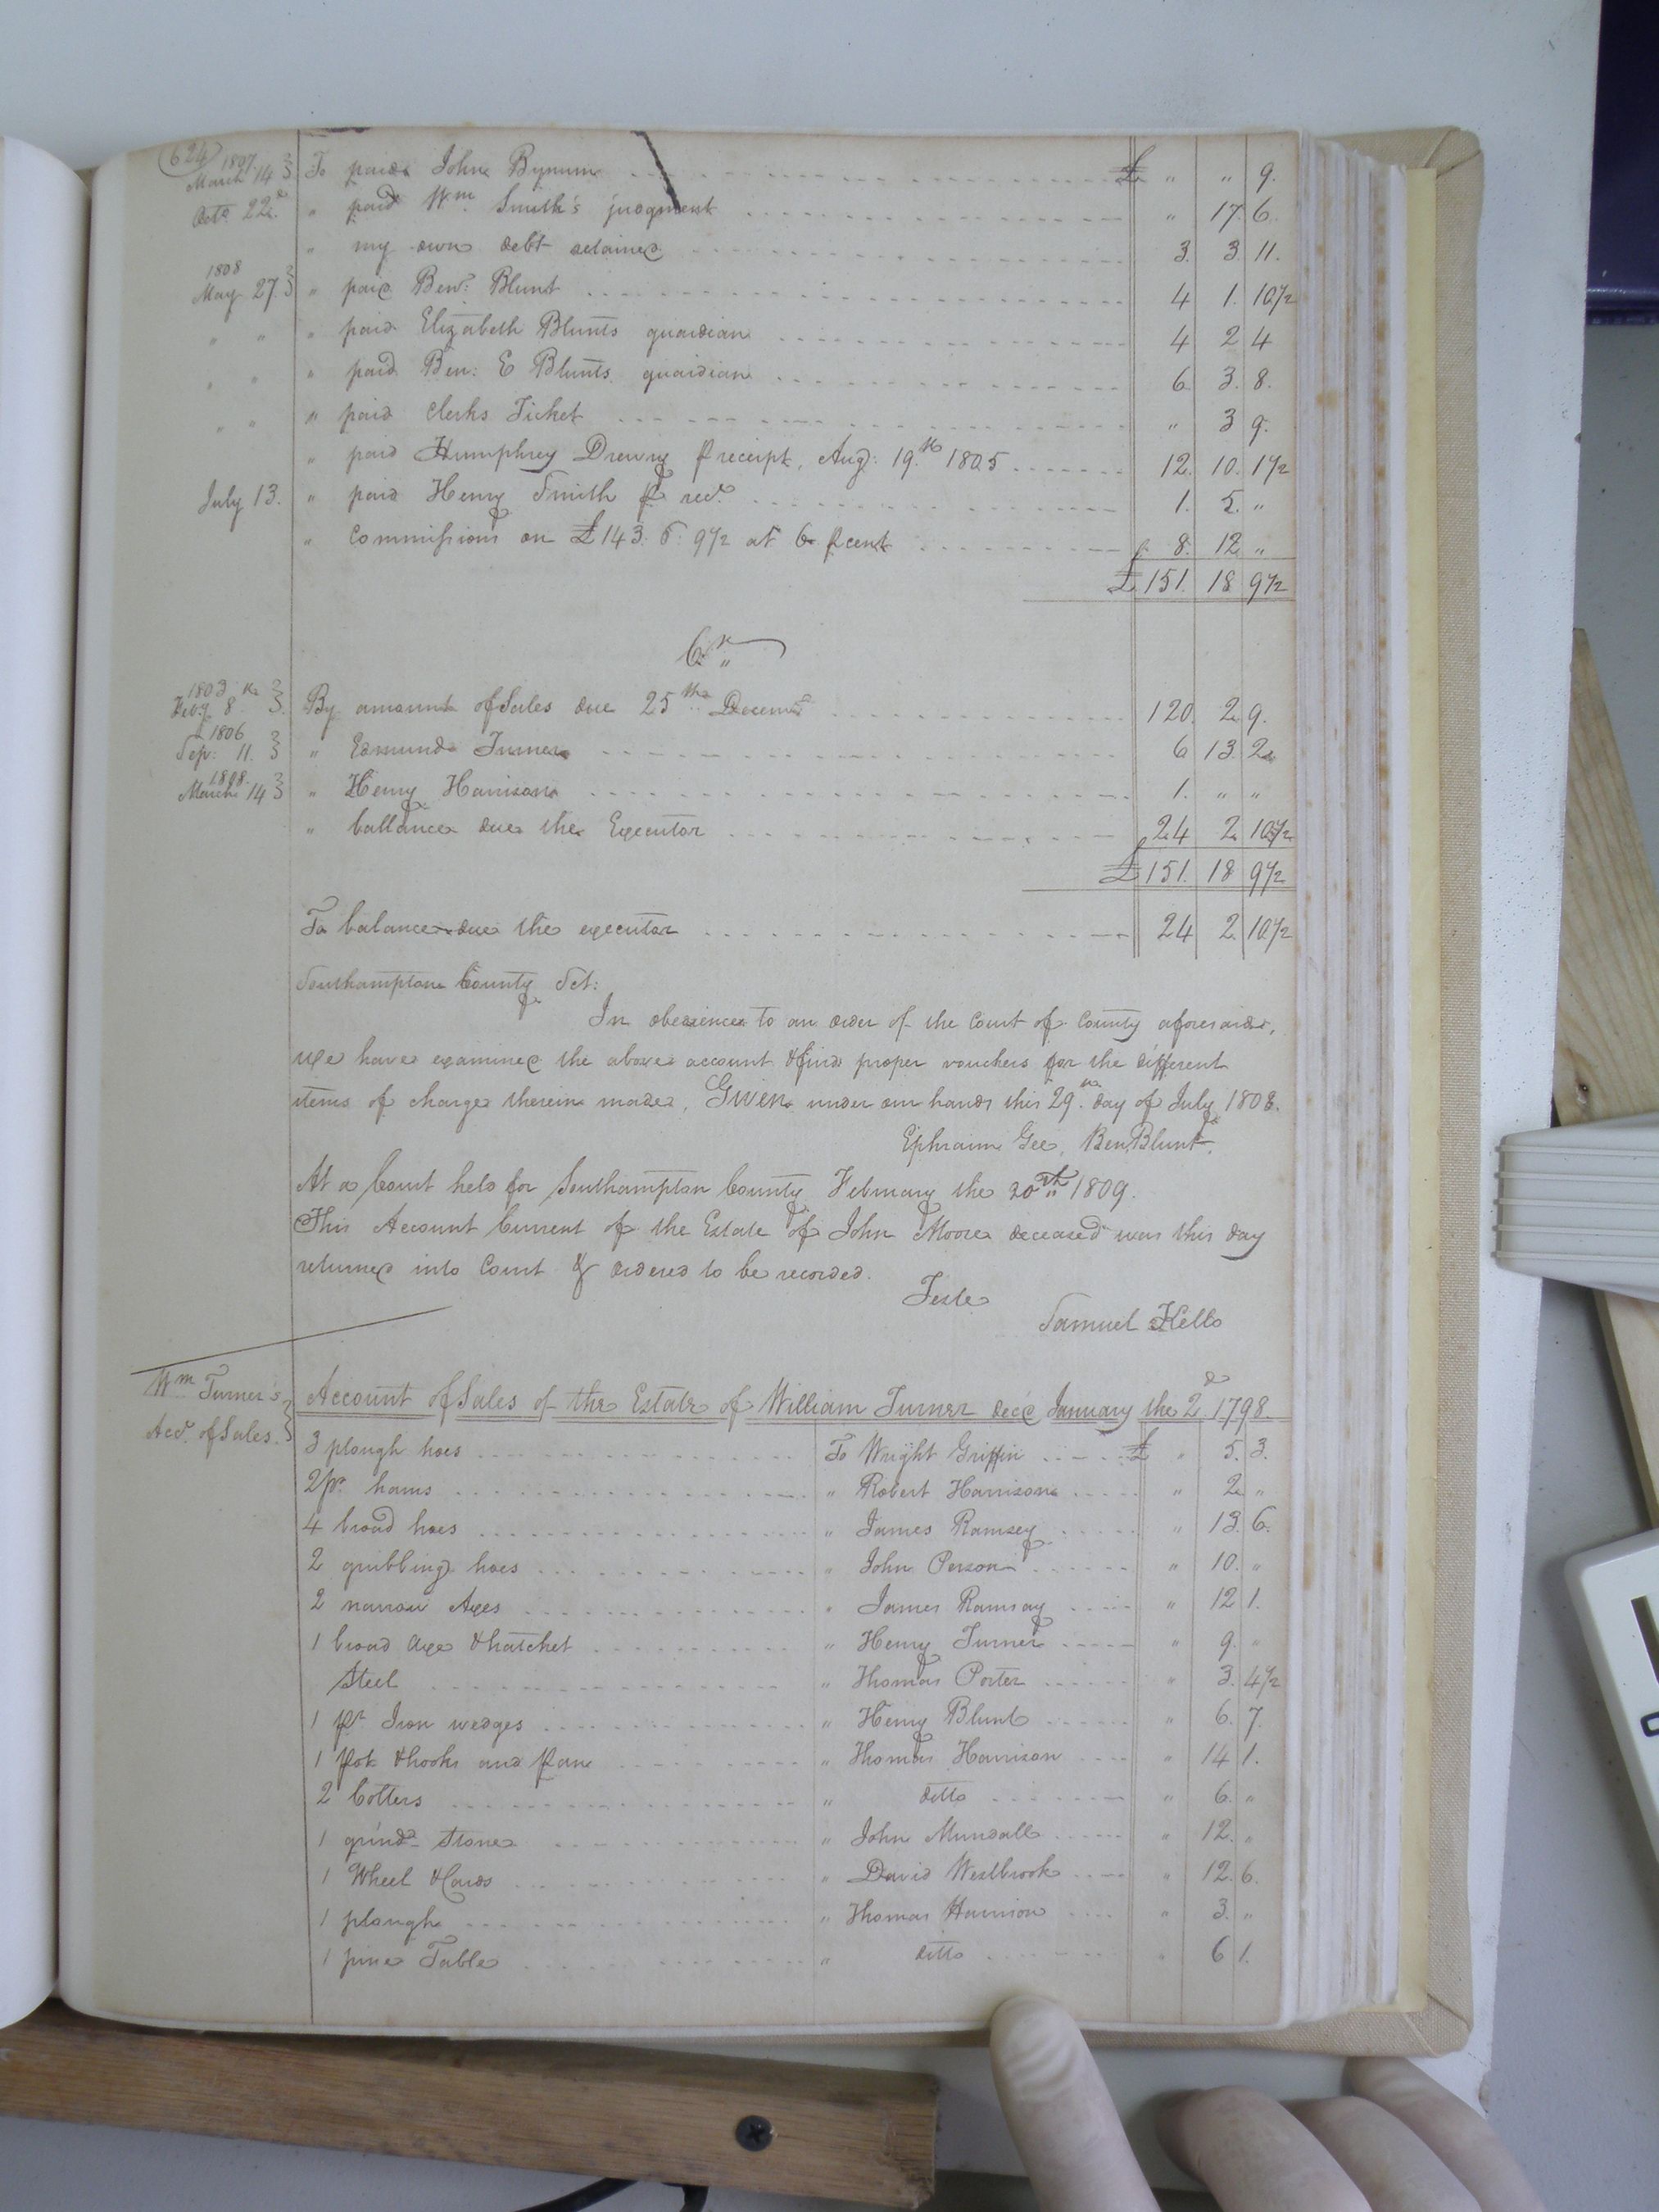 624
1807 March 14 To paid John Bynum £ " " 9.
Octo. 22d. " paid Wm. Smith's judgment " 17. 6.
" my own debt retained 3. 3. 11.
1808 May 27. " paid Benj: Blunt 4 1. 10½
" " " paid Elizabeth Blunts guardian 4 2 4
" " " paid Ben: E Blunts guardian 6 3. 8.
" " " paid Clerks Ticket " 3 9.
" paid Humphrey Drewry p receipt, Aug: 19.th 1805 12. 10. 1½
July 13. " paid Henry Smith p rect. 1. 5. "
" Commissions on £143. 6. 9½ at 6 p cent 8. 12 "
£ 151. 18 9½
Cr.
1803 Feby. 8th By amount of Sales due 25th Decemr 120. 2. 9.
1806 Sep: 11. " Edmund Turner 6 13. 2
1808. March 14 " Henry Harrison 1. " "
" ballance due the Executor 24 2. 10½
£ 151. 18 9½
To balance due the executor 24 2. 10½
Southampton County Sct:
In obedience to an order of the Court of County aforesaid,
we have examined the above account & find proper vouchers for the different
items of charge therein made. Given under our hands this 29.th day of July 1808.
Ephraim Gee, Ben Blunt.
At a Court held for Southampton County February the 20th 1809.
This Account Current of the Estate of John Moore deceased was this day
returned into Court & ordered to be recorded.
Teste
Samuel Kello
Wm Turner's Acct. of Sales.
Account of Sales of the Estate of William Turner decd January the 2d 1798.
3 plough hoes To Wright Griffin £ " 5. 3.
2 pr. hams " Robert Harrison " 2 "
4 broad hoes " James Ramsey " 13. 6.
2 grubbing hoes " John Person " 10. "
2 narrow Axes " James Ramsay " 12 1.
1 broad axe & hatchet " Henry Turner " 9. "
Steel " Thomas Porter " 3. 4½
1 pr Iron wedges " Henry Blunt " 6. 7.
1 Pot & hooks and Pan " Thomas Harrison " 14 1.
2 Cotters " ditto " 6. "
1 grind Stone " John Mundall " 12. "
1 Wheel & Cards " David Westbrook " 12. 6.
1 plough " Thomas Harrison " 3. "
1 pine Table " ditto " 6 1.